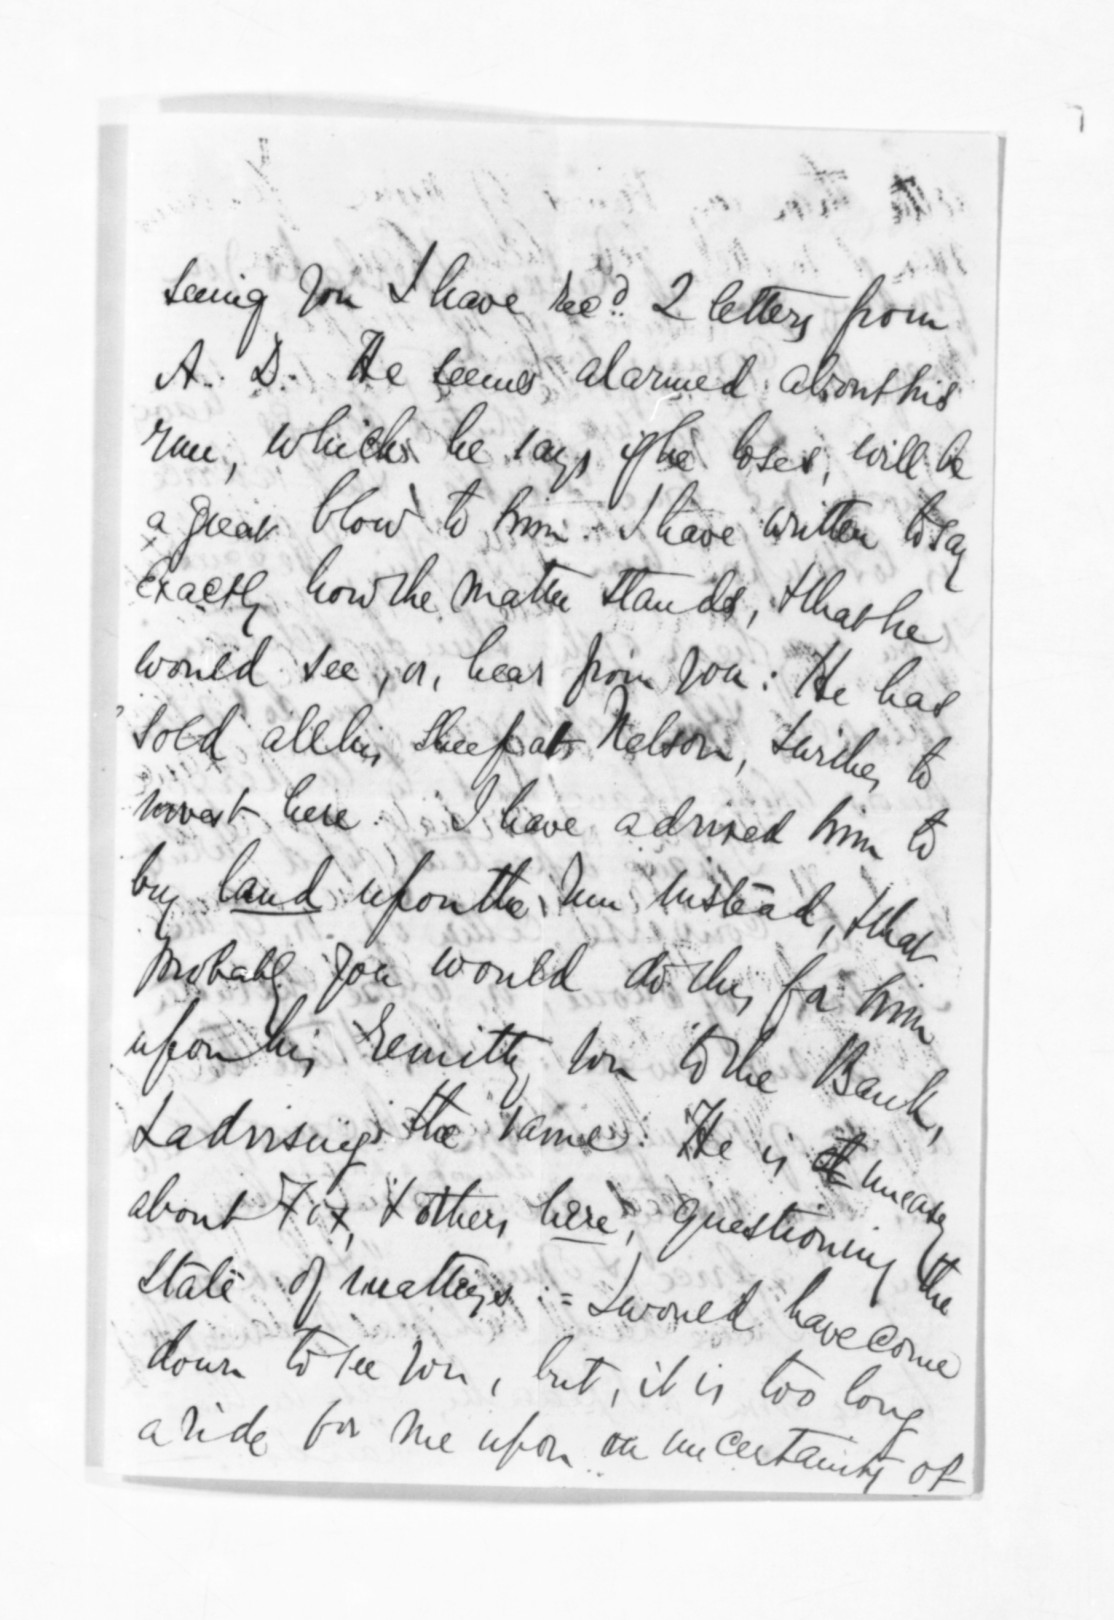 seeing you I have recd. 2 letters from
A. D. He seems alarmed about his
run, which he says if he loses, will be
a great blow to him. I have written to say
exactly how the matter stands, & that he
would see, or, hear from you: He has
sold all his sheep at Nelson, & wishes to
invest here. I have advised him to
buy land upon the run instead, & that
probably you would do this for him
upon his remittg you to the Bank,
& advising the same. He is uneasy
about Fox, & others here, questioning the
state of matters := I would have come
down to see you, but, it is too long
a ride for me upon an uncertainty of